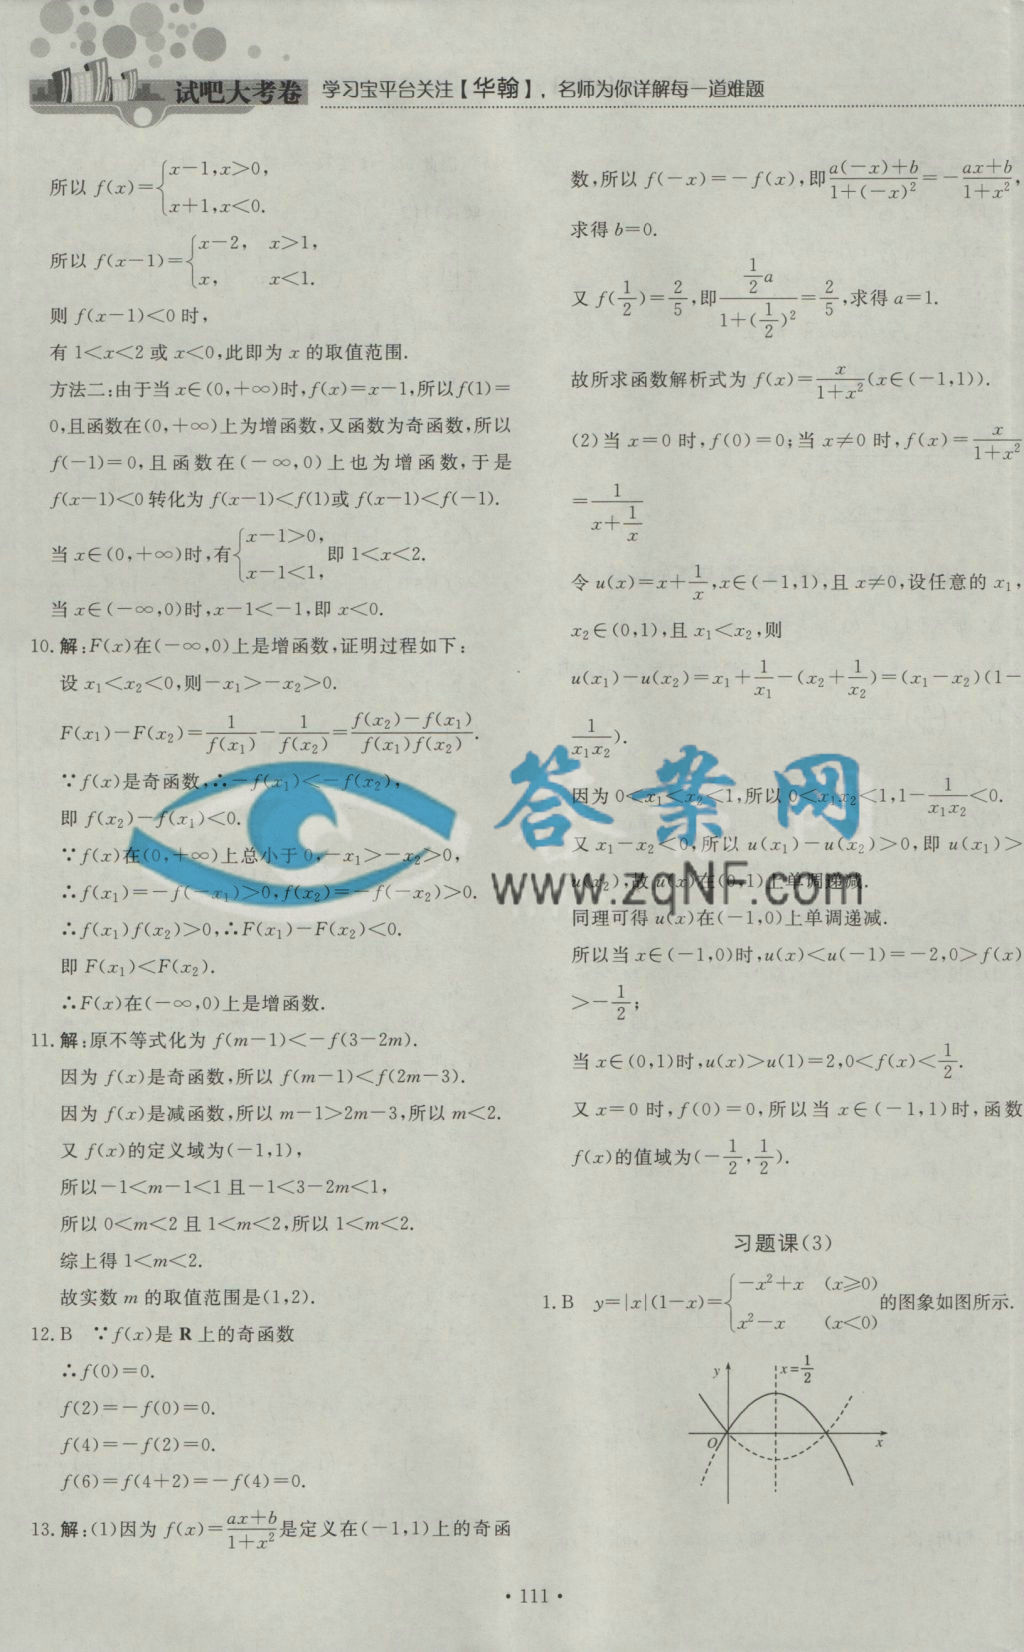 试吧大考卷 学习宝平台关注【华翰】，名师为你详解每一道难题
所以 f(x)={x－1,x＞0,
x＋1,x＜0.
所以 f(x－1)={x－2， x＞1,
x, x＜1.
则 f(x－1)＜0 时,
有 1＜x＜2 或 x＜0,此即为 x 的取值范围.
方法二:由于当 x∈(0,＋∞)时,f(x)=x－1,所以f(1)=
0,且函数在(0,＋∞)上为增函数,又函数为奇函数,所以
f(－1)=0,且函数在(－∞,0)上也为增函数,于是
f(x－1)＜0 转化为 f(x－1)＜f(1)或 f(x－1)＜f(－1).
当 x∈(0,＋∞)时,有{x－1＞0,
x－1＜1, 即 1＜x＜2.
当 x∈(－∞,0)时,x－1＜－1,即 x＜0.
10.解:F(x)在(－∞,0)上是增函数,证明过程如下:
设 x₁＜x₂＜0,则－x₁＞－x₂＞0.
F(x₁)－F(x₂)=1/f(x₁)－1/f(x₂)=(f(x₂)－f(x₁))/(f(x₁)f(x₂)).
∵f(x)是奇函数,∴－f(x₁)＜－f(x₂),
即 f(x₂)－f(x₁)＜0.
∵f(x)在(0,＋∞)上总小于 0,－x₁＞－x₂＞0,
∴f(x₁)=－f(－x₁)＞0,f(x₂)=－f(－x₂)＞0.
∴f(x₁)f(x₂)＞0,∴F(x₁)－F(x₂)＜0.
即 F(x₁)＜F(x₂).
∴F(x)在(－∞,0)上是增函数.
11.解:原不等式化为 f(m－1)＜－f(3－2m).
因为 f(x)是奇函数,所以 f(m－1)＜f(2m－3).
因为 f(x)是减函数,所以 m－1＞2m－3,所以 m＜2.
又 f(x)的定义域为(－1,1),
所以－1＜m－1＜1 且－1＜3－2m＜1,
所以 0＜m＜2 且 1＜m＜2,所以 1＜m＜2.
综上得 1＜m＜2.
故实数 m 的取值范围是(1,2).
12.B ∵f(x)是 R 上的奇函数
∴f(0)=0.
f(2)=－f(0)=0.
f(4)=－f(2)=0.
f(6)=f(4＋2)=－f(4)=0.
13.解:(1)因为 f(x)=(ax＋b)/(1＋x²)是定义在(－1,1)上的奇函
数,所以 f(－x)=－f(x),即(a(－x)＋b)/(1＋(－x)²)=－(ax＋b)/(1＋x²),
求得 b=0.
又 f(1/2)=2/5,即(1/2 a)/(1＋(1/2)²)=2/5,求得 a=1.
故所求函数解析式为 f(x)=x/(1＋x²)(x∈(－1,1)).
(2)当 x=0 时,f(0)=0;当 x≠0 时,f(x)=x/(1＋x²)
=1/(x＋1/x)
令 u(x)=x＋1/x,x∈(－1,1),且 x≠0,设任意的 x₁,
x₂∈(0,1),且 x₁＜x₂,则
u(x₁)－u(x₂)=x₁＋1/x₁－(x₂＋1/x₂)=(x₁－x₂)(1－
1/(x₁x₂)).
因为 0＜x₁＜x₂＜1,所以 0＜x₁x₂＜1,1－1/(x₁x₂)＜0.
又 x₁－x₂＜0,所以 u(x₁)－u(x₂)＞0,即 u(x₁)＞
u(x₂),故 u(x)在(0,1)上单调递减.
同理可得 u(x)在(－1,0)上单调递减.
所以当 x∈(－1,0)时,u(x)＜u(－1)=－2,0＞f(x)
＞－1/2;
当 x∈(0,1)时,u(x)＞u(1)=2,0＜f(x)＜1/2.
又 x=0 时,f(0)=0,所以当 x∈(－1,1)时,函数
f(x)的值域为(－1/2,1/2).
习题课(3)
1.B y=|x|(1－x)={－x²＋x (x≥0)
x²－x (x＜0) 的图象如图所示.
y
x=1/2
O
x
答案网
www.zqNF.com
·111·